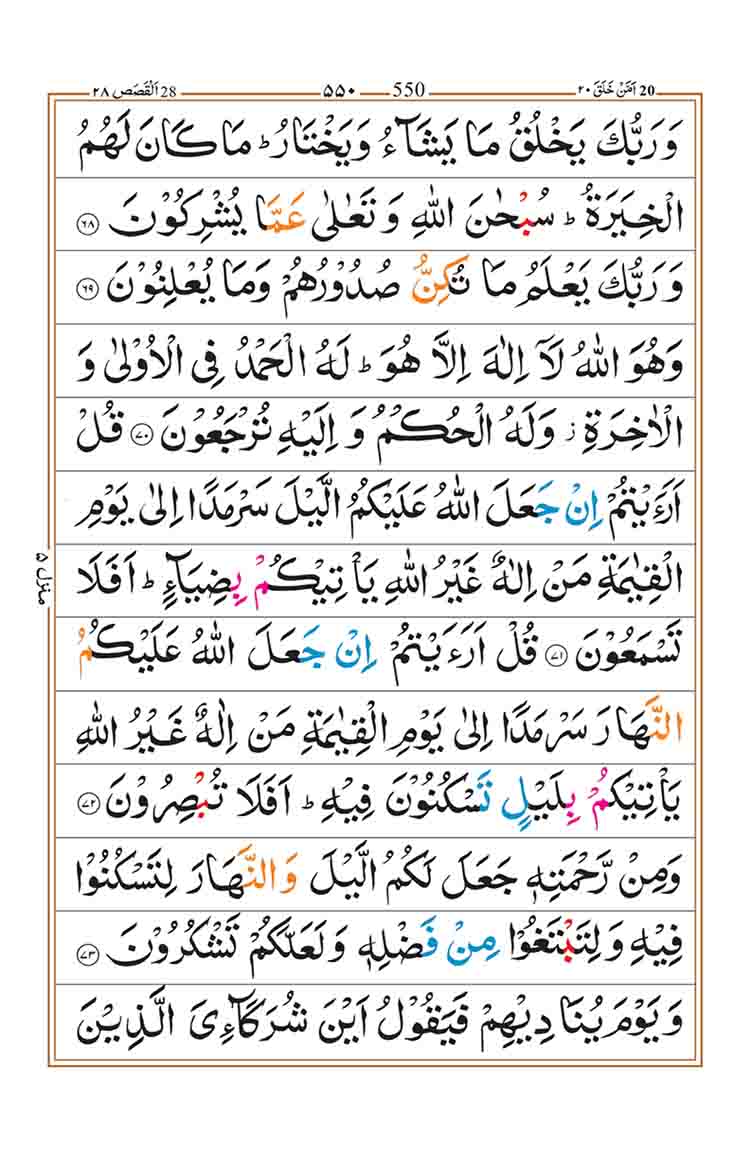 20 اَمَّنْ خَلَقَ ۲۰ 550 ۵۵۰ 28 اَلْقَصَص ۲۸
وَرَبُّكَ يَخْلُقُ مَا يَشَآءُ وَيَخْتَارُ ؕ مَا كَانَ لَهُمُ
الْخِيَرَةُ ؕ سُبْحٰنَ اللّٰهِ وَ تَعٰلٰى عَمَّا يُشْرِكُوْنَ ۶۸
وَ رَبُّكَ يَعْلَمُ مَا تُكِنُّ صُدُوْرُهُمْ وَمَا يُعْلِنُوْنَ ۶۹
وَهُوَ اللّٰهُ لَاۤ اِلٰهَ اِلَّا هُوَ ؕ لَهُ الْحَمْدُ فِى الْاُوْلٰى وَ
الْاٰخِرَةِ ز وَلَهُ الْحُكْمُ وَ اِلَيْهِ تُرْجَعُوْنَ ۷۰ قُلْ
اَرَءَيْتُمْ اِنْ جَعَلَ اللّٰهُ عَلَيْكُمُ الَّيْلَ سَرْمَدًا اِلٰى يَوْمِ
الْقِيٰمَةِ مَنْ اِلٰهٌ غَيْرُ اللّٰهِ يَاْتِيْكُمْ بِضِيَآءٍ ؕ اَفَلَا
تَسْمَعُوْنَ ۷۱ قُلْ اَرَءَيْتُمْ اِنْ جَعَلَ اللّٰهُ عَلَيْكُمُ
النَّهَارَ سَرْمَدًا اِلٰى يَوْمِ الْقِيٰمَةِ مَنْ اِلٰهٌ غَيْرُ اللّٰهِ
يَاْتِيْكُمْ بِلَيْلٍ تَسْكُنُوْنَ فِيْهِ ؕ اَفَلَا تُبْصِرُوْنَ ۷۲
وَمِنْ رَّحْمَتِهٖ جَعَلَ لَكُمُ الَّيْلَ وَالنَّهَارَ لِتَسْكُنُوْا
فِيْهِ وَ لِتَبْتَغُوْا مِنْ فَضْلِهٖ وَ لَعَلَّكُمْ تَشْكُرُوْنَ ۷۳
وَ يَوْمَ يُنَادِيْهِمْ فَيَقُوْلُ اَيْنَ شُرَكَآءِىَ الَّذِيْنَ
منزل ۵